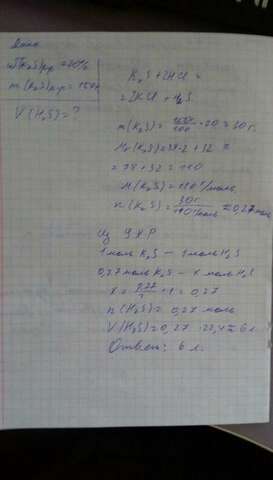 Дано
w(K₂S)р-р = 20%
m(K₂S)р-р = 150г
V(H₂S) = ?
K₂S + 2HCl =
= 2KCl + H₂S
m(K₂S) = 150г/100 · 20 = 30г.
Mr(K₂S) = 39·2 + 32 =
= 78 + 32 = 110
M(K₂S) = 110 г/моль
n(K₂S) = 30г/110г/моль ≈ 0,27 моль
Из УХР
1 моль K₂S — 1 моль H₂S
0,27 моль K₂S — x моль H₂S
x = 0,27/1 · 1 = 0,27
n(H₂S) = 0,27 моль
V(H₂S) = 0,27 · 22,4 ≈ 6 л.
Ответ: 6 л.